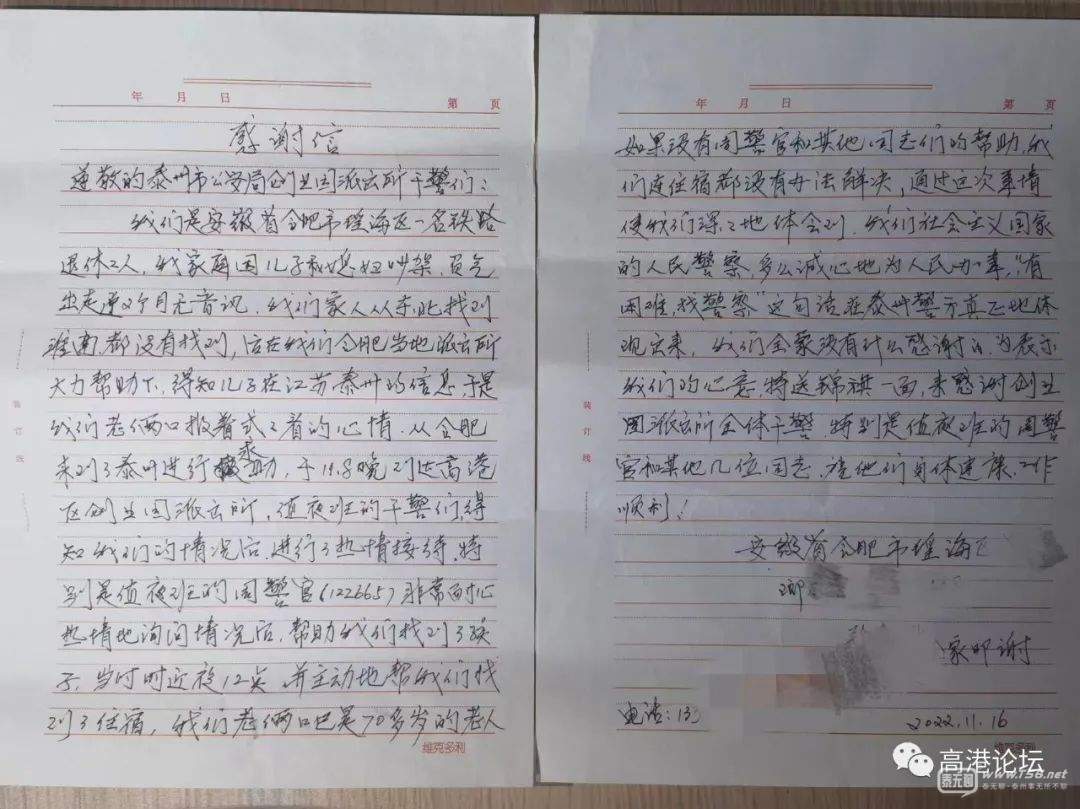 年 月 日 第 页
感谢信
尊敬的泰州市公安局创业园派出所干警们：
我们是安徽省合肥市瑶海区一名铁路
退休工人，我家庭因儿子和媳妇吵架，负气
出走近2个月无音讯，我们家人从东北找到
淮南都没有找到，后在我们合肥当地派出所
大力帮助下，得知儿子在江苏泰州的信息，于是
我们老俩口报着试之着的心情，从合肥
来到了泰州进行求助，于11.8晚到达高港
区创业园派出所，值夜班的干警们，得
知我们的情况后，进行了热情接待，特
别是值夜班的周警官（122665）非常耐心
热情地询问情况后，帮助我们找到了孩
子，当时时近夜12点，并主动地帮我们找
到了住宿，我们老俩口已是70多岁的老人
维克多利
装订线
年 月 日 第 页
如果没有周警官和其他同志们的帮助，我
们连住宿都没有办法解决，通过这次事情
使我们深之地体会到，我们社会主义国家
的人民警察，多么诚心地为人民办事，“有
困难，找警察”这句话在泰州警方真正地体
现出来，我们全家没有什么感谢的，为表示
我们的心意，特送锦旗一面，来感谢创业
园派出所全体干警，特别是值夜班的周警
官和其他几位同志，祝他们身体健康，工作
顺利！
安徽省合肥市瑶海区
家叩谢
电话：13
2022.11.16
维克多利
装订线
高港论坛
泰无聊 www.t56.net
泰无聊·泰州事无所不聊